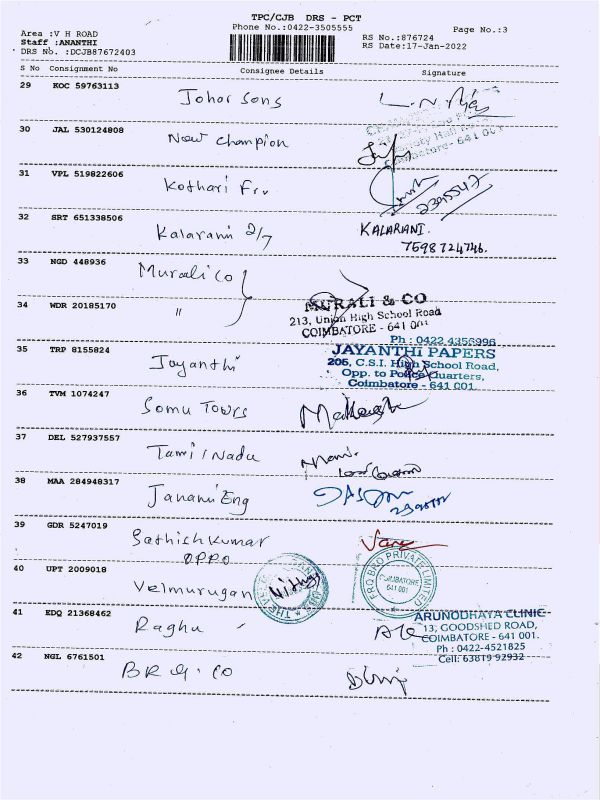 TPC/CJB DRS - PCT
Area :V H ROAD Phone No.:0422-3505555 Page No.:3
Staff :ANANTHI RS No.:876724
DRS No. :DCJB87672403 RS Date:17-Jan-2022
S No Consignment No Consignee Details Signature
29 KOC 59763113
Johar Sons
30 JAL 530124808
New Champion
641 001
31 VPL 519822606
Kothari Frv
2395547
32 SRT 651338506
Kalarani 2/7
KALARANI.
7598724746.
33 NGD 448936
Murali co
34 WDR 20185170
"
MURALI & CO
213, Union High School Road
COIMBATORE - 641 001
Ph : 0422 4356996
35 TRP 8155824
Jayanthi
JAYANTHI PAPERS
205, C.S.I. High School Road,
Opp. to Police Quarters,
Coimbatore - 641 001.
36 TVM 1074247
Somu Towrs
37 DEL 527937557
Tamil Nadu
38 MAA 284948317
Janani Eng
39 GDR 5247019
Sathishkumar
OPPO
40 UPT 2009018
Velmurugan
PRO BRO PRIVATE LIMITED
COIMBATORE
641 001
41 EDQ 21368462
Raghu
ARUNODHAYA CLINIC
13, GOODSHED ROAD,
COIMBATORE - 641 001.
Ph : 0422-4521825
Cell: 63819 92932
42 NGL 6761501
B R G. CO